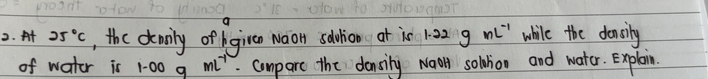 2. At 25°C, the density of a given NaOH solution at is 1.22 g mL⁻¹ while the density
of water is 1.00 g mL⁻¹. Compare the density NaOH solution and water. Explain.